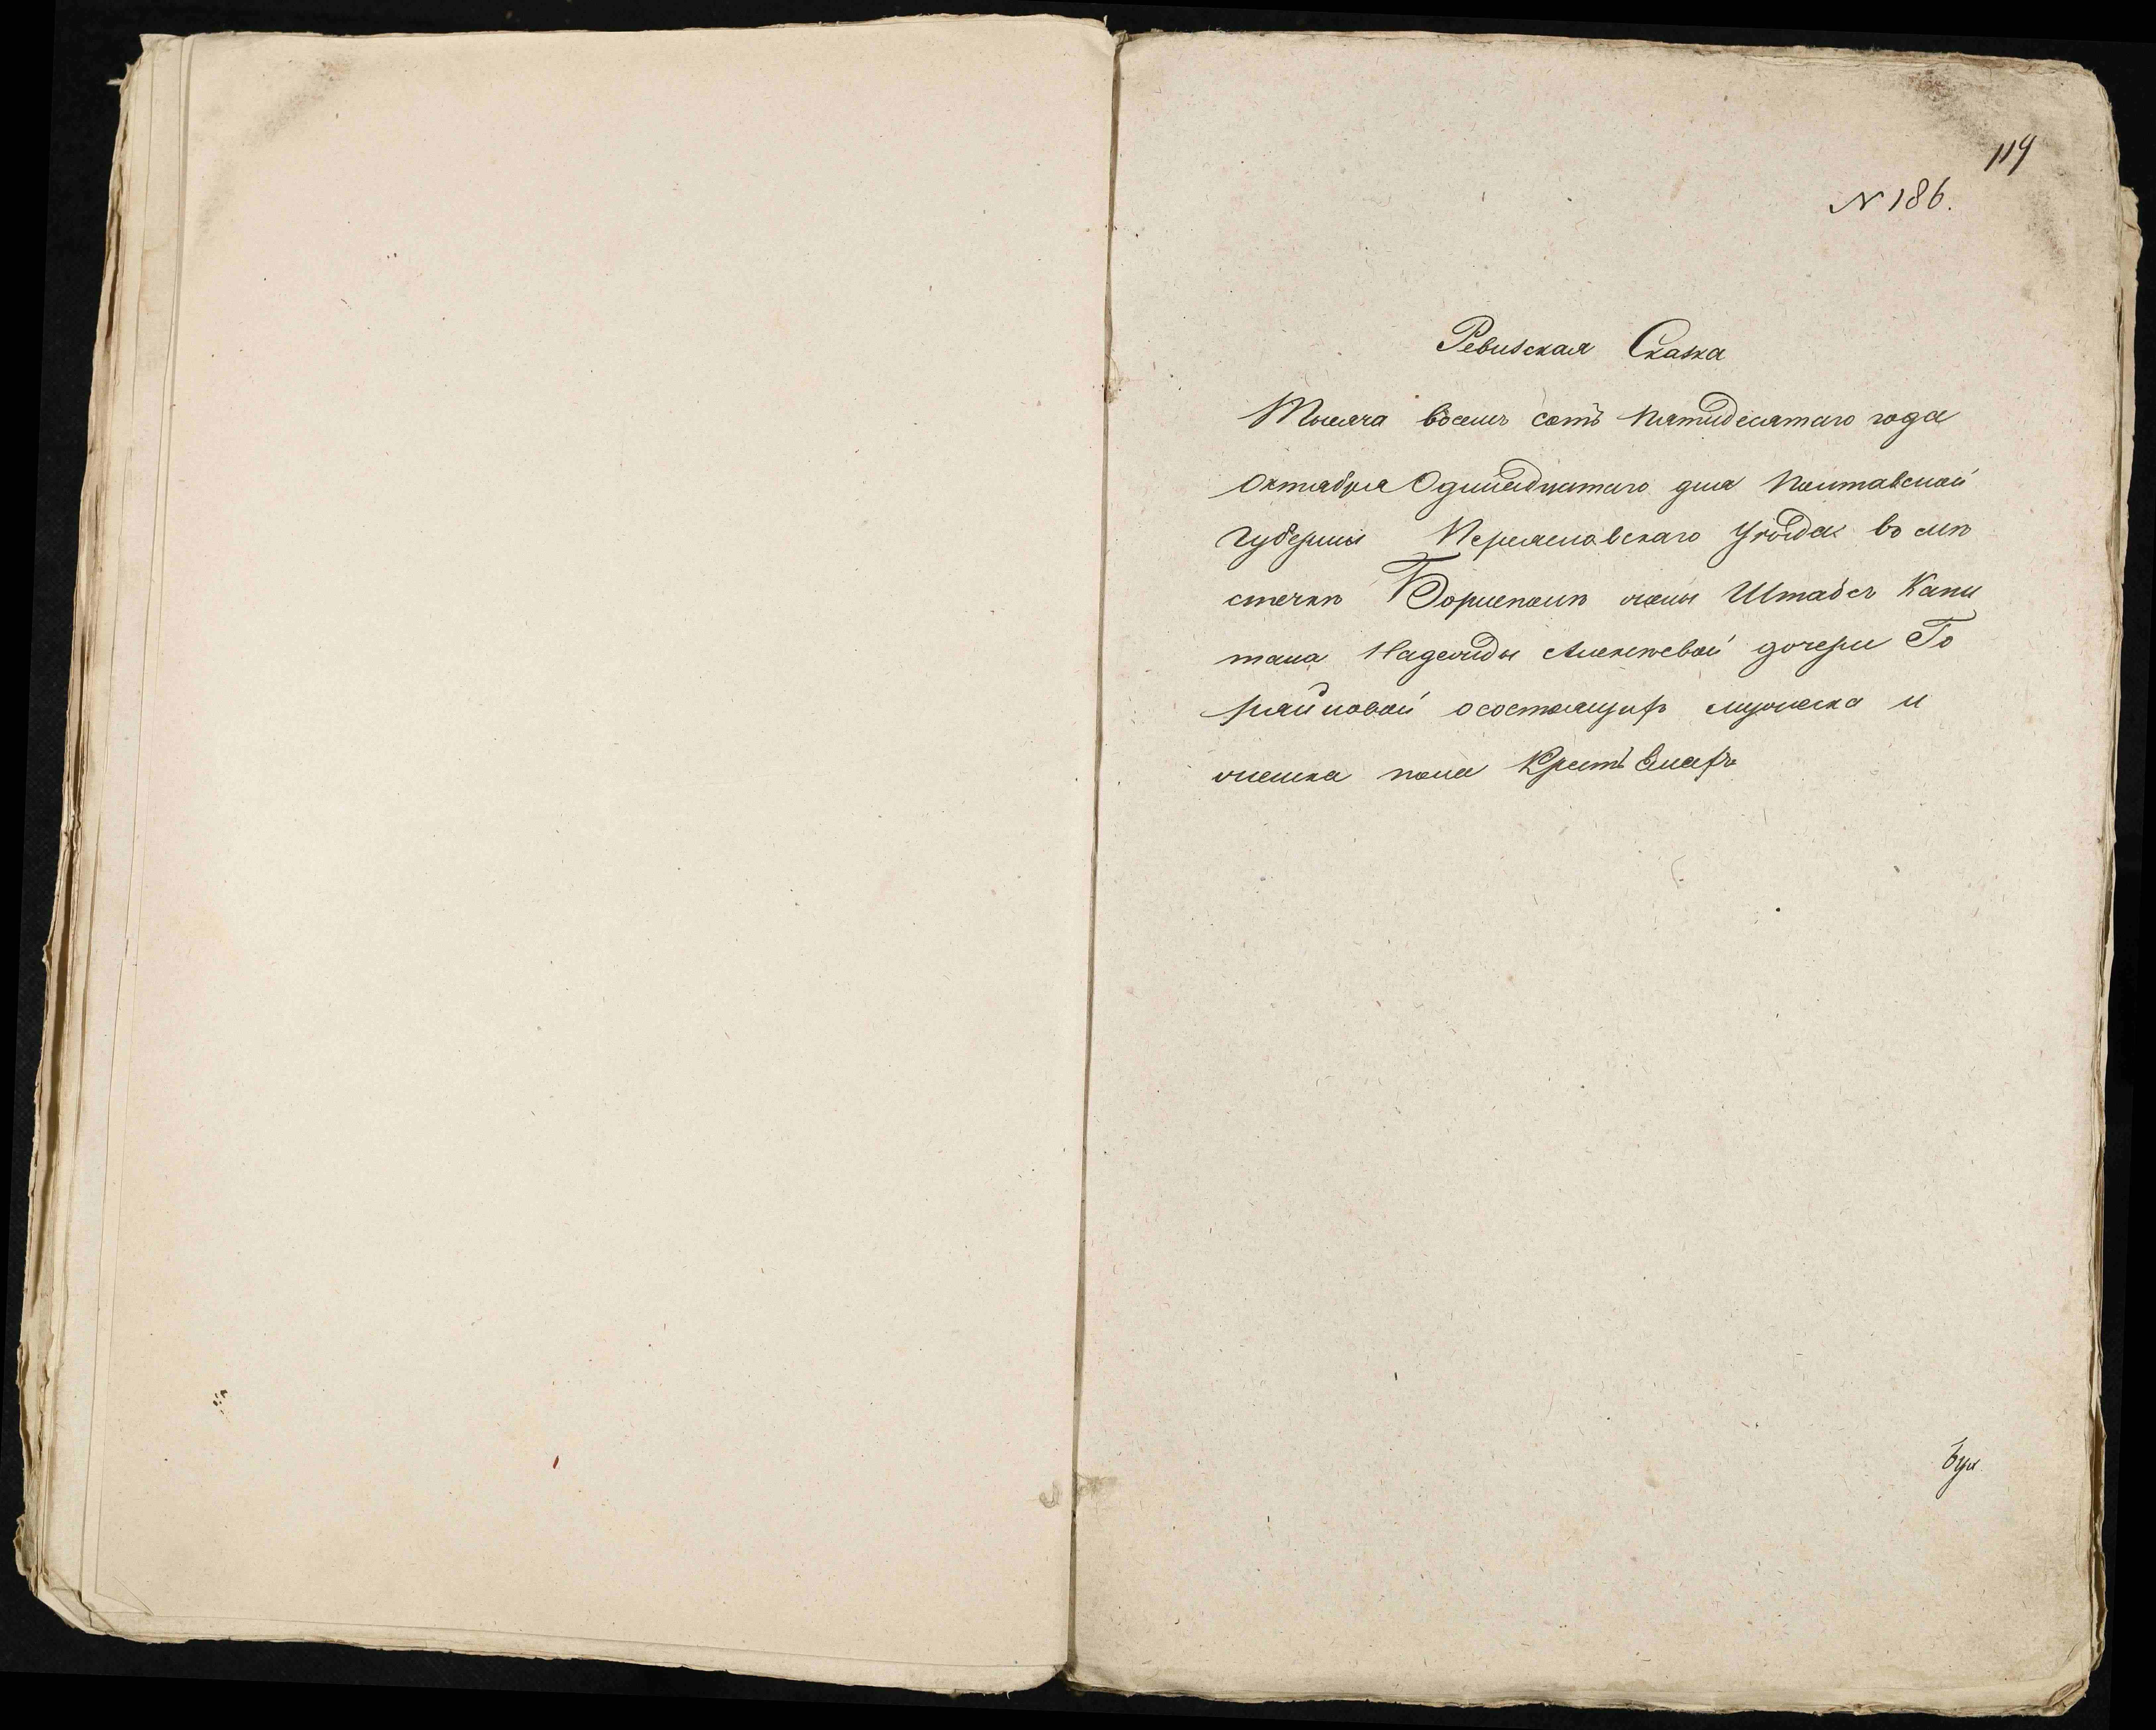 119
N 186.
Ревизская Сказка
Тысяча восемь сотъ пятидесятаго года
Октября Одинадцатаго дня Полтавской
Губерніи Переясловскаго Уѣзда въ мѣ
стечкѣ Борисполѣ жены Штабсъ Капи
тана Надежды Алексѣевой дочери Го
райновой о состоящихъ мужеска и
женска пола Крестьянахъ